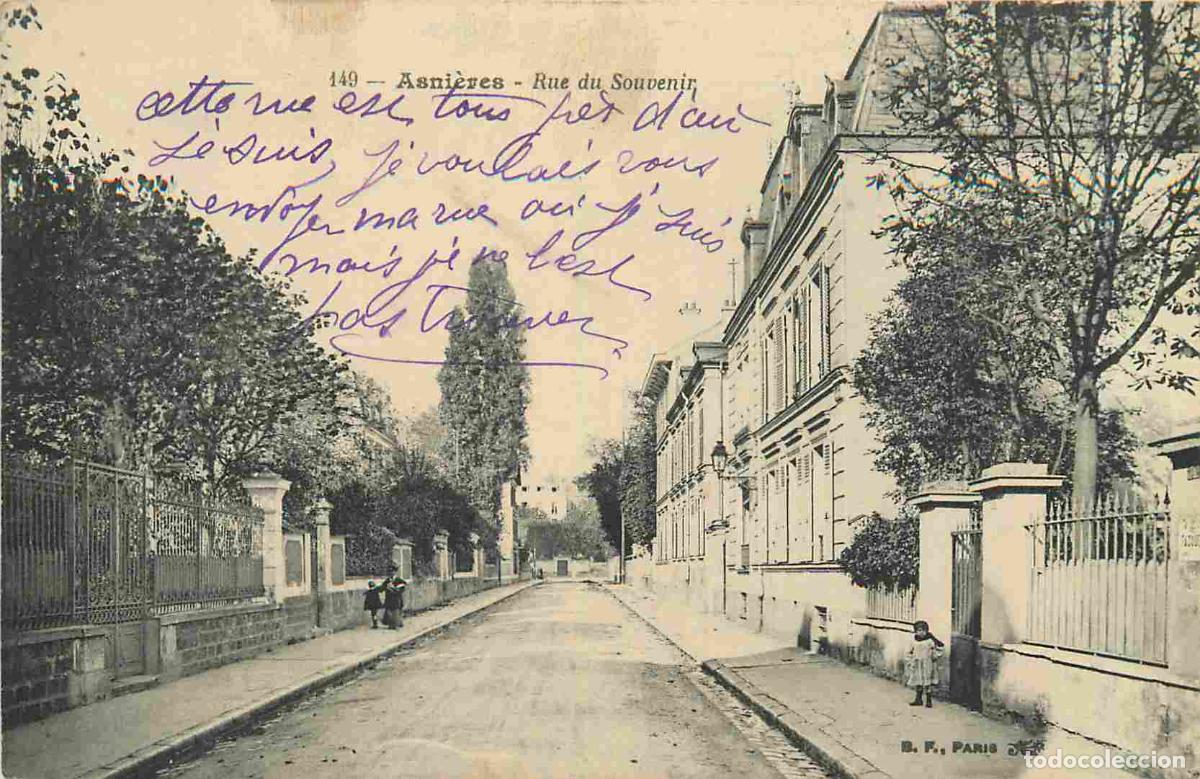 149 — Asnières - Rue du Souvenir
cette rue est tous près d'où
Je suis, je voulais vous
envoyer ma rue où j'suis
mais je ne l'est
pas trouver
B. F., PARIS
todocoleccion